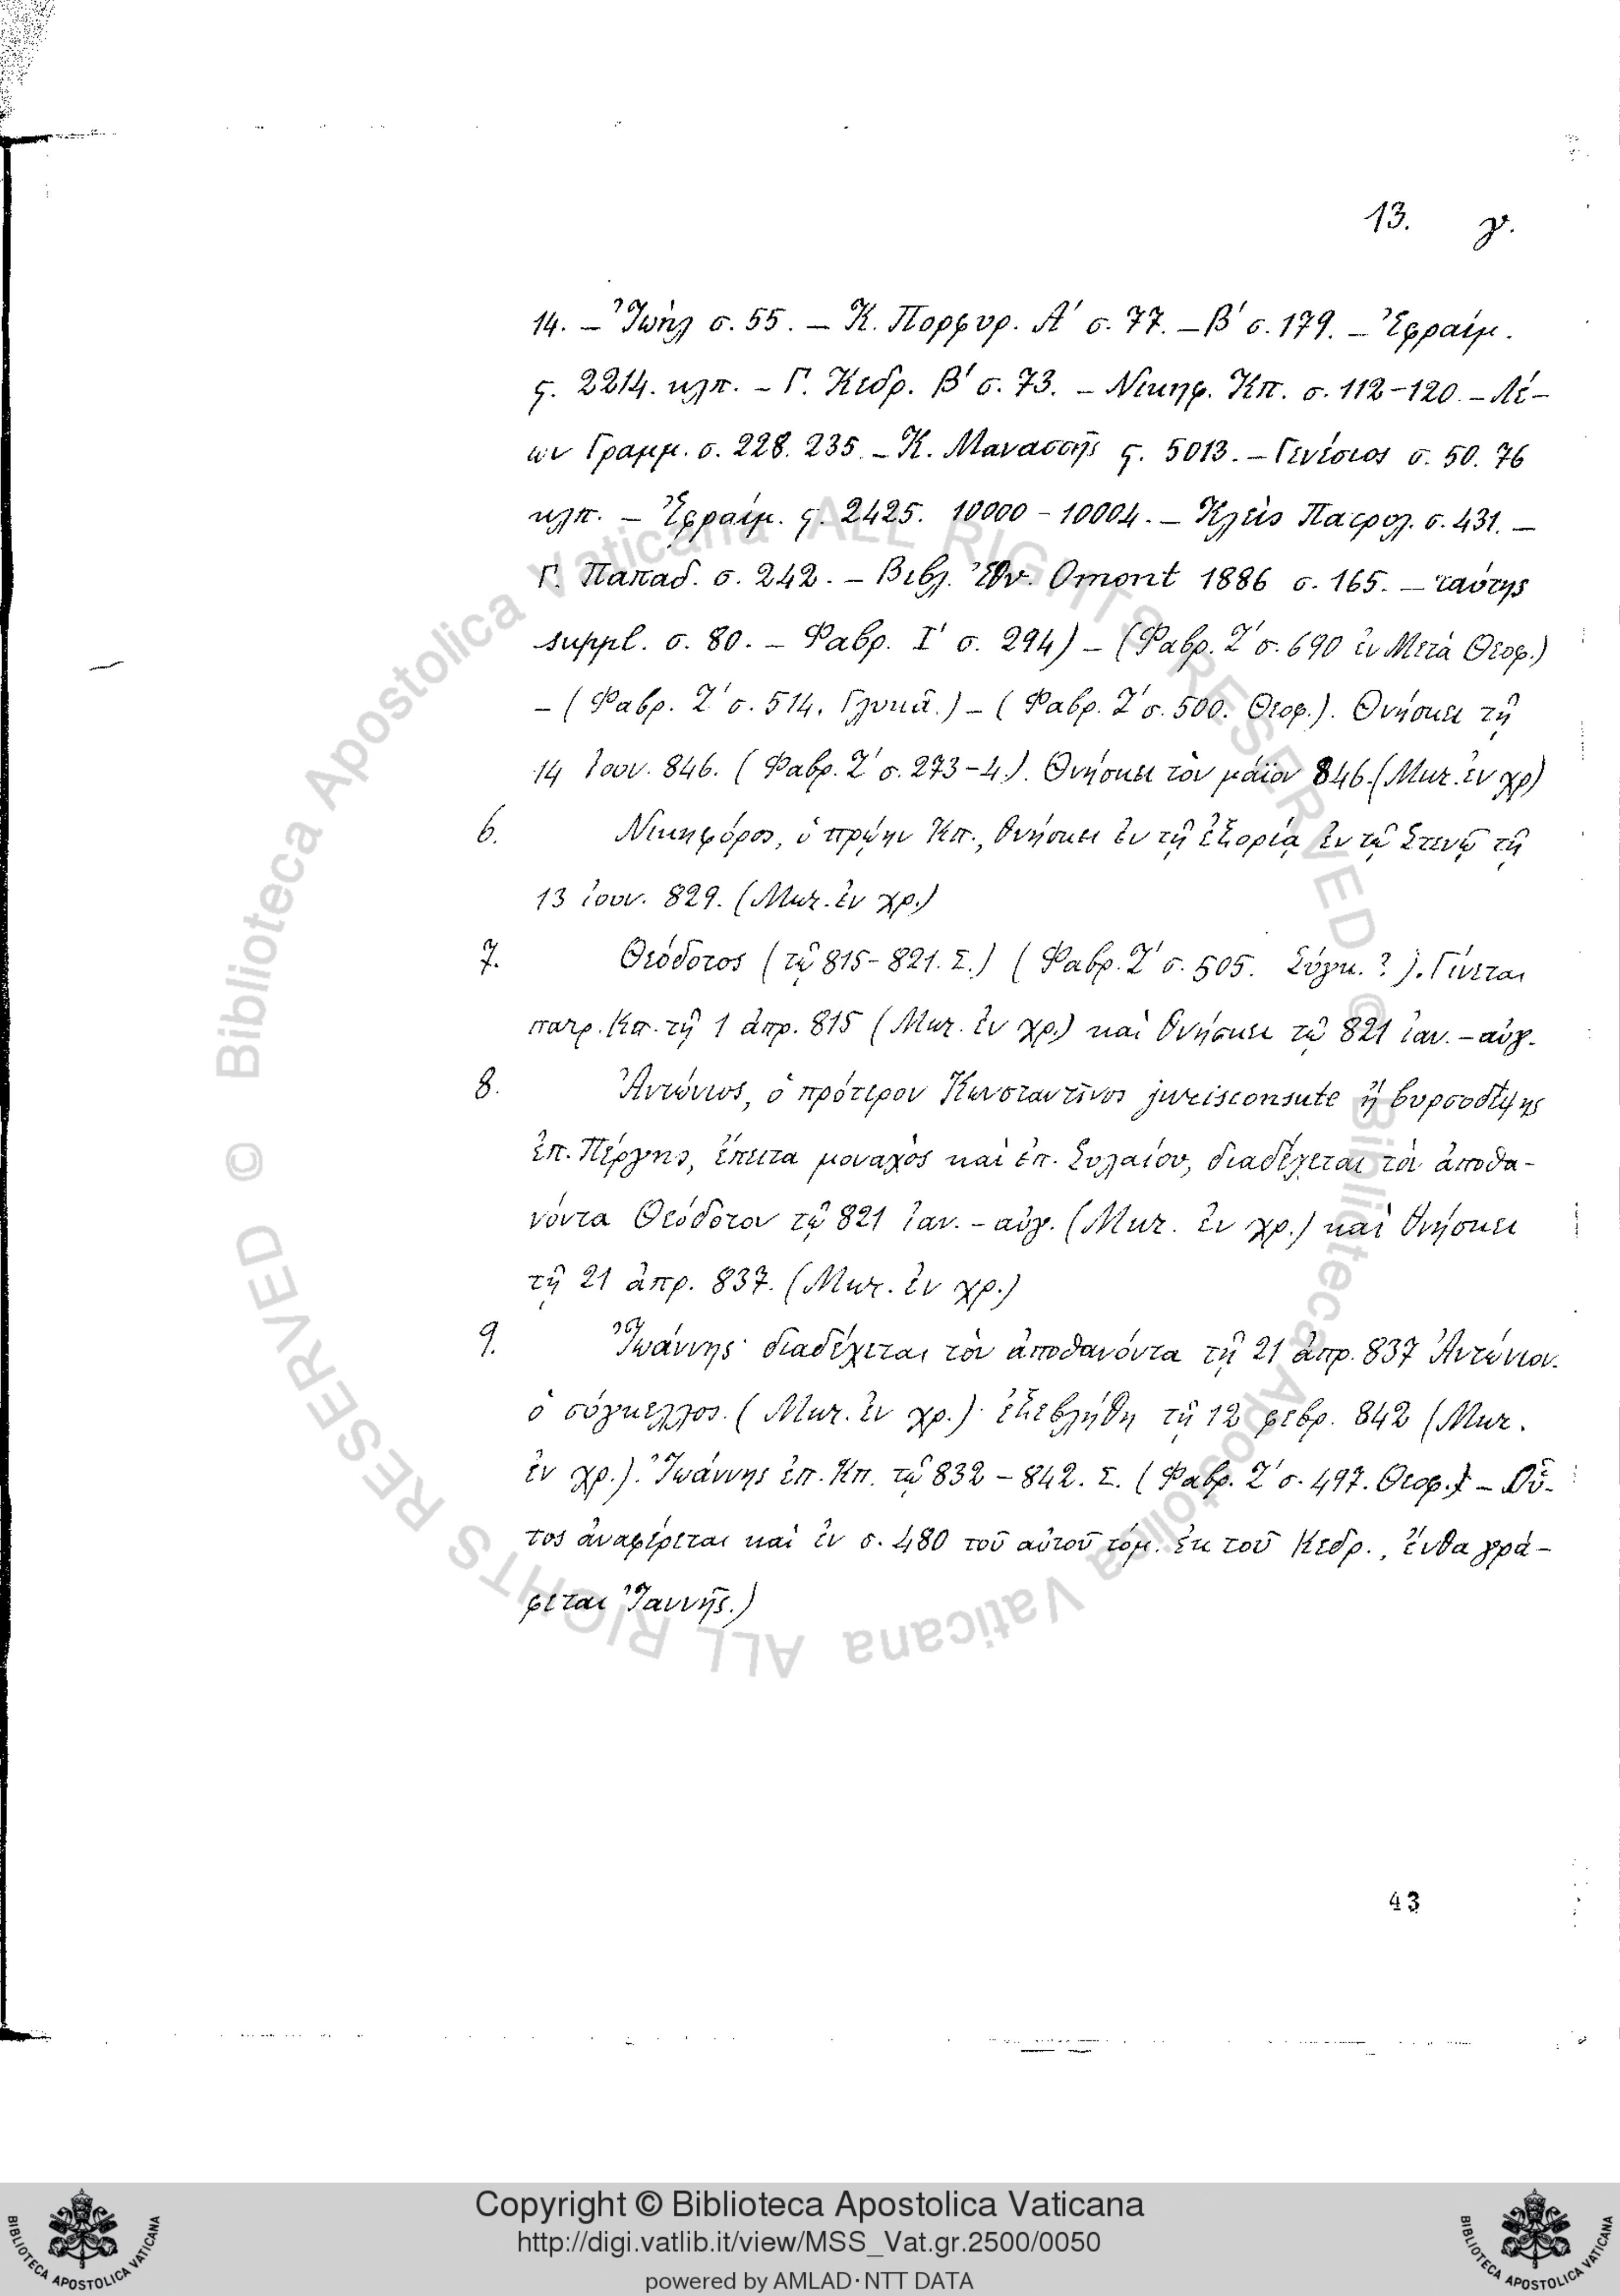 13. γ.
14. – Ἰωὴλ σ. 55. – Κ. Πορφυρ. Α' σ. 77. – Β' σ. 179. – Ἐφραίμ.
ς. 2214. κλπ. – Γ. Κεδρ. Β' σ. 73. – Νικηφ. Κπ. σ. 112–120. – Λέ-
ων Γραμμ. σ. 228. 235. – Κ. Μανασσῆς ς. 5013. – Γενέσιος σ. 50. 76
κλπ. – Ἐφραίμ. ς. 2425. 10000 – 10004. – Κλεὶς Πατρολ. σ. 431. –
Γ. Παπαδ. σ. 242. – Βιβλ. Ἐθν. Omont 1886 σ. 165. – ταύτης
suppl. σ. 80. – Φαβρ. Ι' σ. 294) – (Φαβρ. Ζ' σ. 690 ἐν Μετὰ Θεοφ.)
– (Φαβρ. Ζ' σ. 514. Γλυκᾶ.) – (Φαβρ. Ζ' σ. 500. Θεοφ.). Θνήσκει τῇ
14 Ἰουν. 846. (Φαβρ. Ζ' σ. 273–4.). Θνήσκει τὸν μάϊον 846. (Μυτ. ἐν χρ)
6. Νικηφόρος, ὁ πρῴην Κπ., θνήσκει ἐν τῇ ἐξορίᾳ ἐν τῷ Στενῷ τῇ
13 ἰουν. 829. (Μυτ. ἐν χρ.)
7. Θεόδοτος (τῷ 815–821. Σ.) (Φαβρ. Ζ' σ. 505. Σύγκ. ?). Γίνεται
πατρ. Κπ. τῇ 1 ἀπρ. 815 (Μυτ. ἐν χρ.) καὶ θνήσκει τῷ 821 ἰαν. – αὐγ.
8. Ἀντώνιος, ὁ πρότερον Κωνσταντῖνος jurisconsute ἢ βυρσοδέψης
ἐπ. Πέργης, ἔπειτα μοναχὸς καὶ ἐπ. Συλαίου, διαδέχεται τὸν ἀποθα-
νόντα Θεόδοτον τῷ 821 ἰαν. – αὐγ. (Μυτ. ἐν χρ.) καὶ θνήσκει
τῇ 21 ἀπρ. 837. (Μυτ. ἐν χρ.)
9. Ἰωάννης διαδέχεται τὸν ἀποθανόντα τῇ 21 ἀπρ. 837 Ἀντώνιον.
ὁ σύγκελλος. (Μυτ. ἐν χρ.) ἐξεβλήθη τῇ 12 φεβρ. 842 (Μυτ.
ἐν χρ.). Ἰωάννης ἐπ. Κπ. τῷ 832 – 842. Σ. (Φαβρ. Ζ' σ. 497. Θεοφ.) – Οὗ-
τος ἀναφέρεται καὶ ἐν σ. 480 τοῦ αὐτοῦ τόμ. ἐκ τοῦ Κεδρ., ἔνθα γρά-
φεται Ἰαννῆς.)
43
© Biblioteca Apostolica Vaticana ALL RIGHTS RESERVED
© Biblioteca Apostolica Vaticana ALL RIGHTS RESERVED
Copyright © Biblioteca Apostolica Vaticana
http://digi.vatlib.it/view/MSS_Vat.gr.2500/0050
powered by AMLAD·NTT DATA
BIBLIOTECA APOSTOLICA VATICANA
BIBLIOTECA APOSTOLICA VATICANA